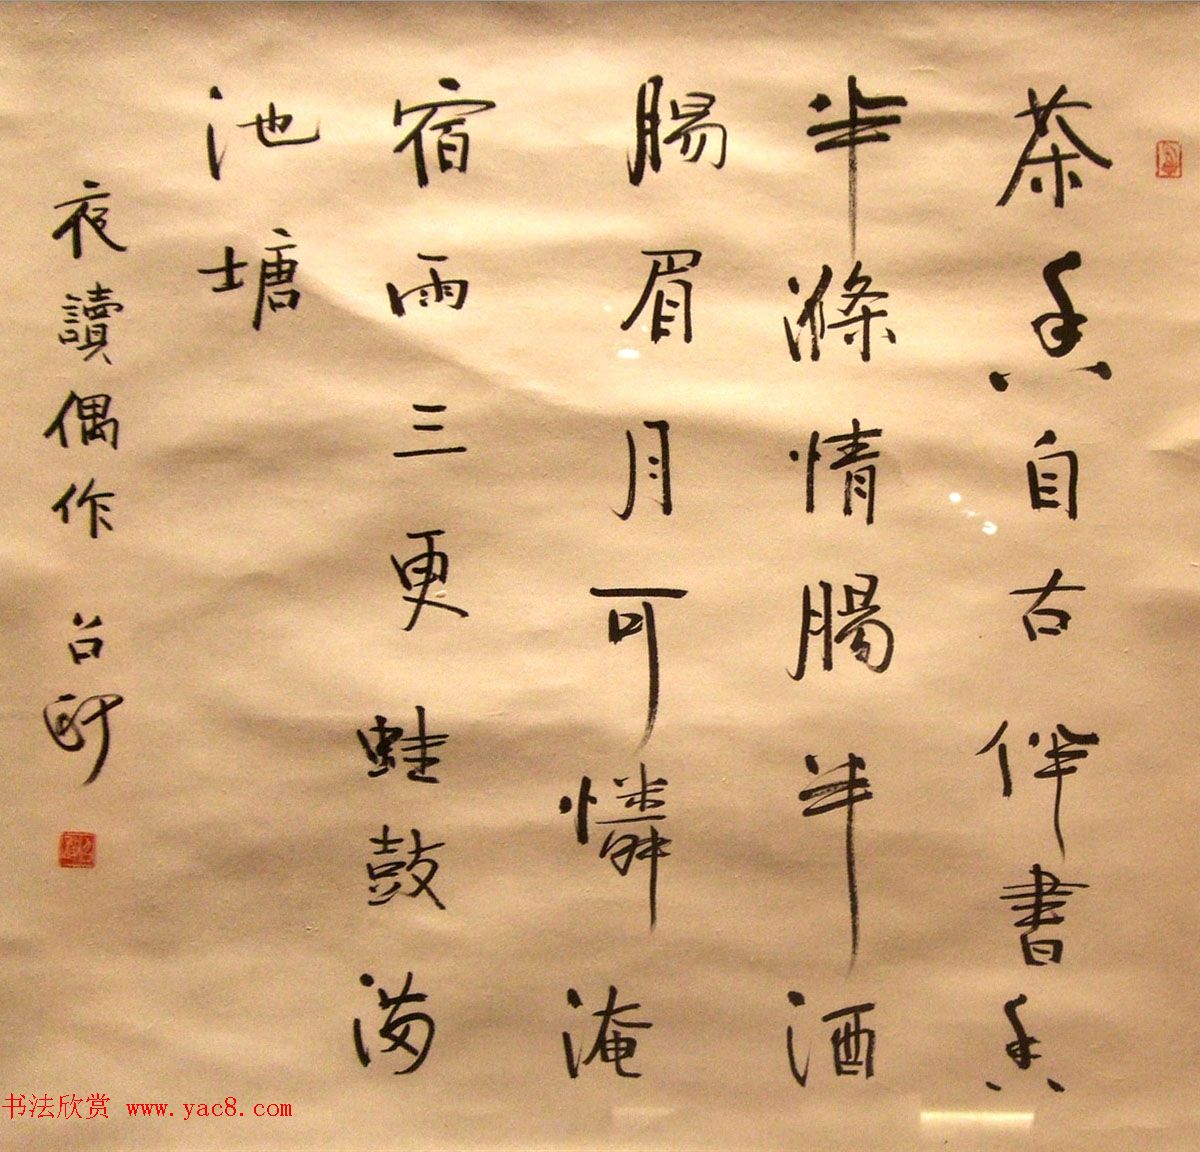 茶香自古伴書香
半滌情腸半酒
腸眉月可憐淹
宿雨三更蛙鼓滿
池塘
夜讀偶作
书法欣赏 www.yac8.com